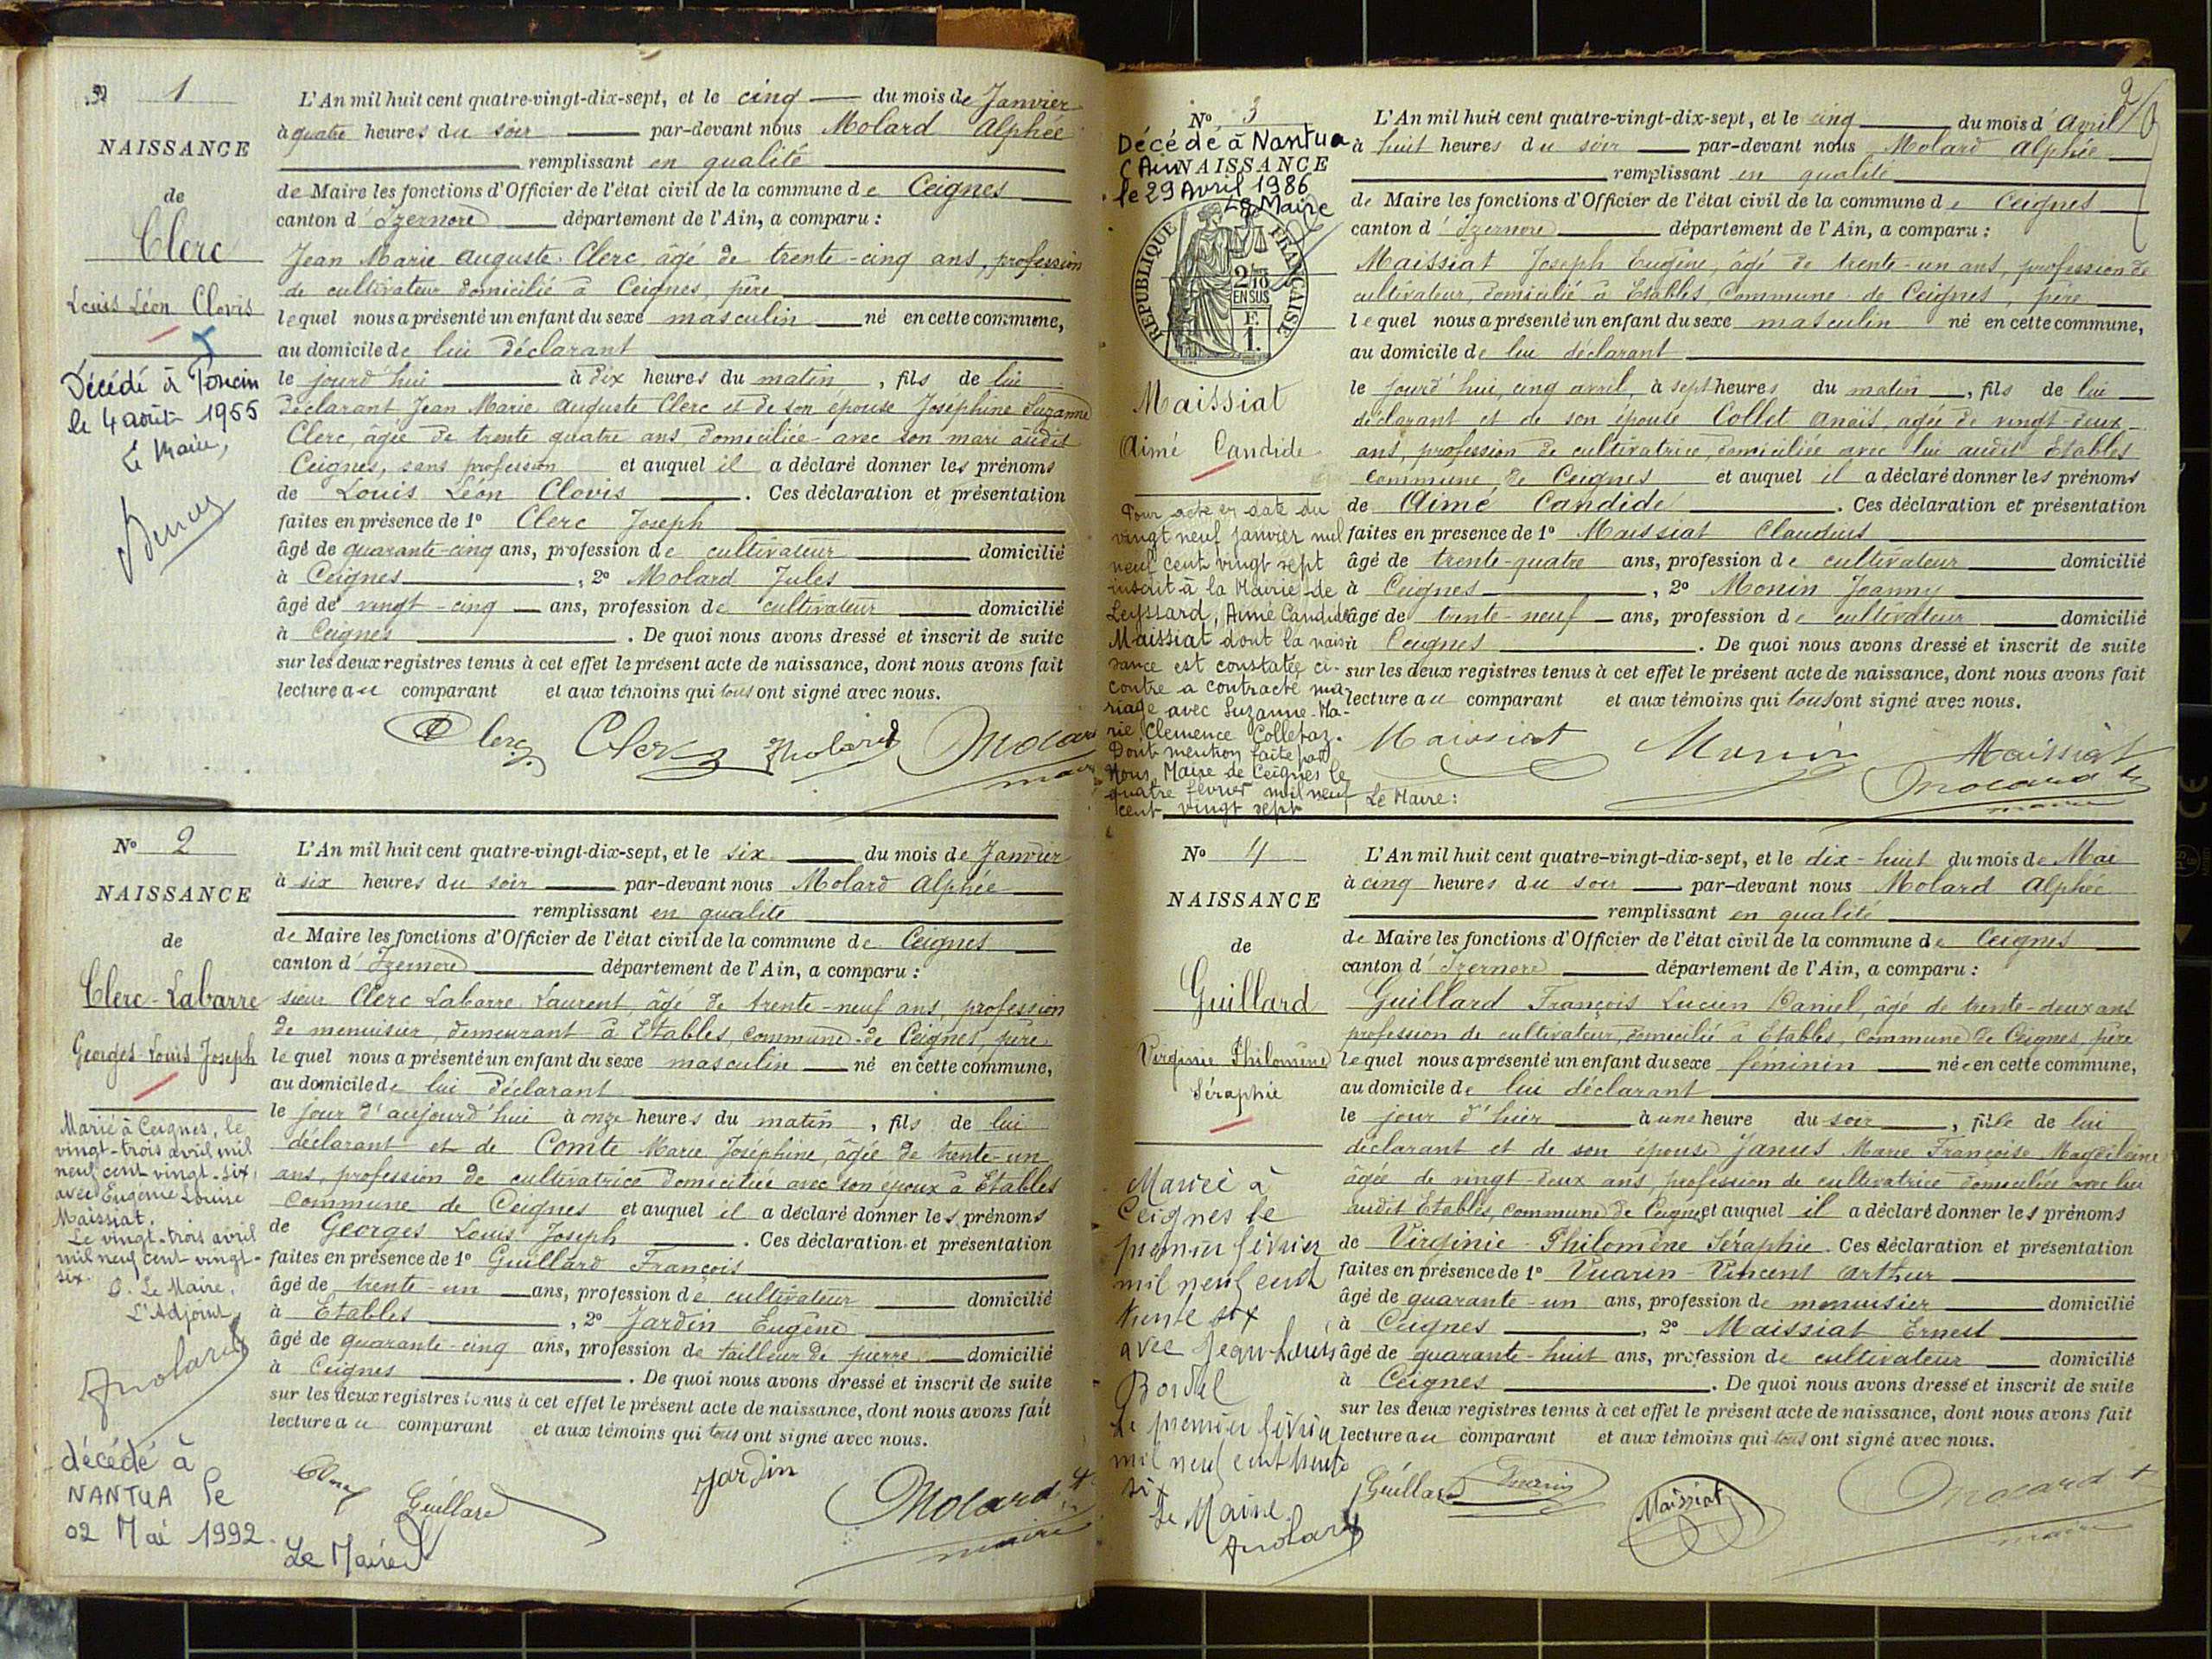 1
NAISSANCE
de
Clerc
Louis Léon Clovis
Décédé à Poncin
le 4 août 1955
Le Maire,
L'An mil huit cent quatre-vingt-dix-sept, et le cinq du mois de Janvier
à quatre heures du soir par-devant nous Molard Alphée
remplissant en qualité
de Maire les fonctions d'Officier de l'état civil de la commune de Ceignes
canton d'Izernore département de l'Ain, a comparu :
Jean Marie Auguste Clerc, âgé de trente-cinq ans, profession
de cultivateur domicilié à Ceignes, père
lequel nous a présenté un enfant du sexe masculin né en cette commune,
au domicile de lui déclarant
le jourd'hui à dix heures du matin, fils de lui
déclarant Jean Marie Auguste Clerc et de son épouse Joséphine Suzanne
Clerc, âgée de trente quatre ans, domiciliée avec son mari audit
Ceignes, sans profession et auquel il a déclaré donner les prénoms
de Louis Léon Clovis. Ces déclaration et présentation
faites en présence de 1° Clerc Joseph
âgé de quarante-cinq ans, profession de cultivateur domicilié
à Ceignes, 2° Molard Jules
âgé de vingt-cinq ans, profession de cultivateur domicilié
à Ceignes. De quoi nous avons dressé et inscrit de suite
sur les deux registres tenus à cet effet le présent acte de naissance, dont nous avons fait
lecture au comparant et aux témoins qui tous ont signé avec nous.
Clerc Clerc Molard Molard
maire
N° 2
NAISSANCE
de
Clerc-Labarre
Georges Louis Joseph
Marié à Ceignes, le
vingt-trois avril mil
neuf cent vingt-six,
avec Eugénie Louise
Maissiat.
Le vingt-trois avril
mil neuf cent vingt-
six.
Le Maire,
L'Adjoint,
Molard
décédé à
NANTUA le
02 Mai 1992.
Le Maire
L'An mil huit cent quatre-vingt-dix-sept, et le six du mois de Janvier
à six heures du soir par-devant nous Molard Alphée
remplissant en qualité
de Maire les fonctions d'Officier de l'état civil de la commune de Ceignes
canton d'Izernore département de l'Ain, a comparu :
sieur Clerc Labarre Laurent, âgé de trente-neuf ans, profession
de menuisier, demeurant à Etables, commune de Ceignes, père
lequel nous a présenté un enfant du sexe masculin né en cette commune,
au domicile de lui déclarant
le jour d'aujourd'hui à onze heures du matin, fils de lui
déclarant et de Comte Marie Joséphine, âgée de trente-un
ans, profession de cultivatrice domiciliée avec son époux à Etables
commune de Ceignes et auquel il a déclaré donner les prénoms
de Georges Louis Joseph. Ces déclaration et présentation
faites en présence de 1° Guillard François
âgé de trente-un ans, profession de cultivateur domicilié
à Etables, 2° Jardin Eugène
âgé de quarante-cinq ans, profession de tailleur de pierre domicilié
à Ceignes. De quoi nous avons dressé et inscrit de suite
sur les deux registres tenus à cet effet le présent acte de naissance, dont nous avons fait
lecture au comparant et aux témoins qui tous ont signé avec nous.
Guillard Jardin Molard
maire
2
N° 3
Décédé à Nantua
(Ain) NAISSANCE
le 29 Avril 1986
Le Maire
RÉPUBLIQUE FRANÇAISE
2/10
EN SUS
F.
1.
Maissiat
Aimé Candide
Pour acte en date du
vingt neuf janvier mil
neuf cent vingt sept
inscrit à la Mairie de
Leyssard, Aimé Candide
Maissiat dont la nais-
sance est constatée ci-
contre a contracté ma-
riage avec Suzanne-Ma-
rie Clemence Colletaz.
Dont mention faite par
Nous, Maire de Ceignes le
quatre février mil neuf
cent vingt sept
Le Maire :
L'An mil huit cent quatre-vingt-dix-sept, et le cinq du mois d'Avril
à huit heures du soir par-devant nous Molard Alphée
remplissant en qualité
de Maire les fonctions d'Officier de l'état civil de la commune de Ceignes
canton d'Izernore département de l'Ain, a comparu :
Maissiat Joseph Eugène, âgé de trente-un ans, profession de
cultivateur, domicilié à Etables, Commune de Ceignes, père
lequel nous a présenté un enfant du sexe masculin né en cette commune,
au domicile de lui déclarant
le jourd'hui, cinq avril à sept heures du matin, fils de lui
déclarant et de son épouse Collet Anaïs, agée de vingt-deux
ans, profession de cultivatrice, domiciliée avec lui audit Etables
commune de Ceignes et auquel il a déclaré donner les prénoms
de Aimé Candide. Ces déclaration et présentation
faites en présence de 1° Maissiat Claudius
âgé de trente-quatre ans, profession de cultivateur domicilié
à Ceignes, 2° Monin Joanny
âgé de trente-neuf ans, profession de cultivateur domicilié
à Ceignes. De quoi nous avons dressé et inscrit de suite
sur les deux registres tenus à cet effet le présent acte de naissance, dont nous avons fait
lecture au comparant et aux témoins qui tous ont signé avec nous.
Maissiat Monin Maissiat
Molard
maire
N° 4
NAISSANCE
de
Guillard
Virginie Philomène
Séraphie
Mariée à
Ceignes le
premier février
mil neuf cent
trente six
avec Jean-Louis
le premier février
mil neuf cent trente
six
Le Maire.
Molard
L'An mil huit cent quatre-vingt-dix-sept, et le dix-huit du mois de Mai
à cinq heures du soir par-devant nous Molard Alphée
remplissant en qualité
de Maire les fonctions d'Officier de l'état civil de la commune de Ceignes
canton d'Izernore département de l'Ain, a comparu :
Guillard François Lucien Daniel, âgé de trente-deux ans
profession de cultivateur, domicilié à Etables, Commune de Ceignes, père
lequel nous a présenté un enfant du sexe féminin née en cette commune,
au domicile de lui déclarant
le jour d'hier à une heure du soir, fille de lui
déclarant et de son épouse Janus Marie Françoise Magdeleine
âgée de vingt-deux ans, profession de cultivatrice domiciliée avec lui
audit Etables, commune de Ceignes et auquel il a déclaré donner les prénoms
de Virginie Philomène Séraphie. Ces déclaration et présentation
faites en présence de 1° Vuarin-Vincent Arthur
âgé de quarante-un ans, profession de menuisier domicilié
à Ceignes, 2° Maissiat Ernest
âgé de quarante-huit ans, profession de cultivateur domicilié
à Ceignes. De quoi nous avons dressé et inscrit de suite
sur les deux registres tenus à cet effet le présent acte de naissance, dont nous avons fait
lecture au comparant et aux témoins qui tous ont signé avec nous.
Guillard Vuarin Maissiat Molard
maire